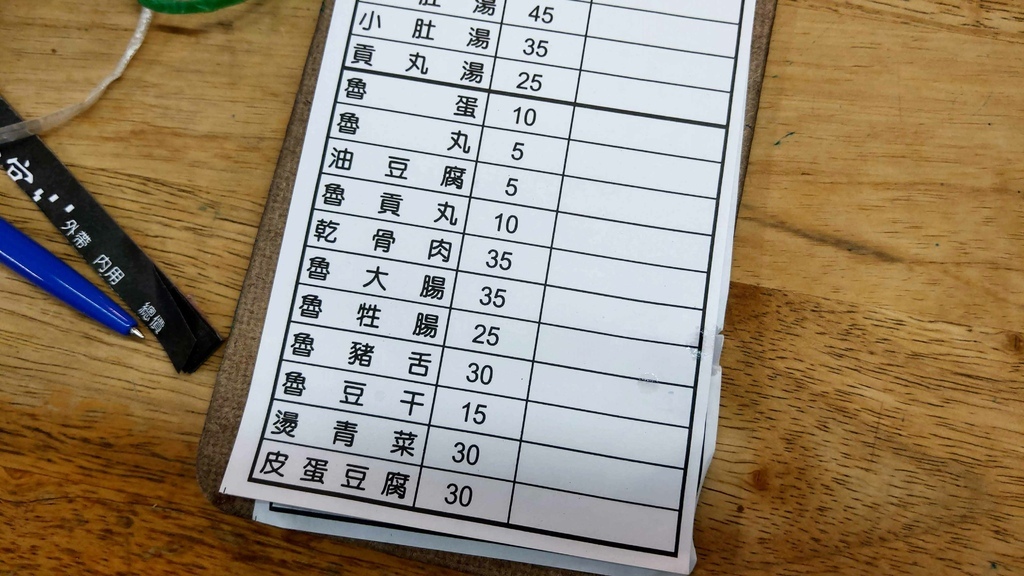 湯 45
小肚湯 35
貢丸湯 25
魯蛋 10
魯丸 5
油豆腐 5
魯貢丸 10
乾骨肉 35
魯大腸 35
魯牲腸 25
魯豬舌 30
魯豆干 15
燙青菜 30
皮蛋豆腐 30
外帶 內用 總價